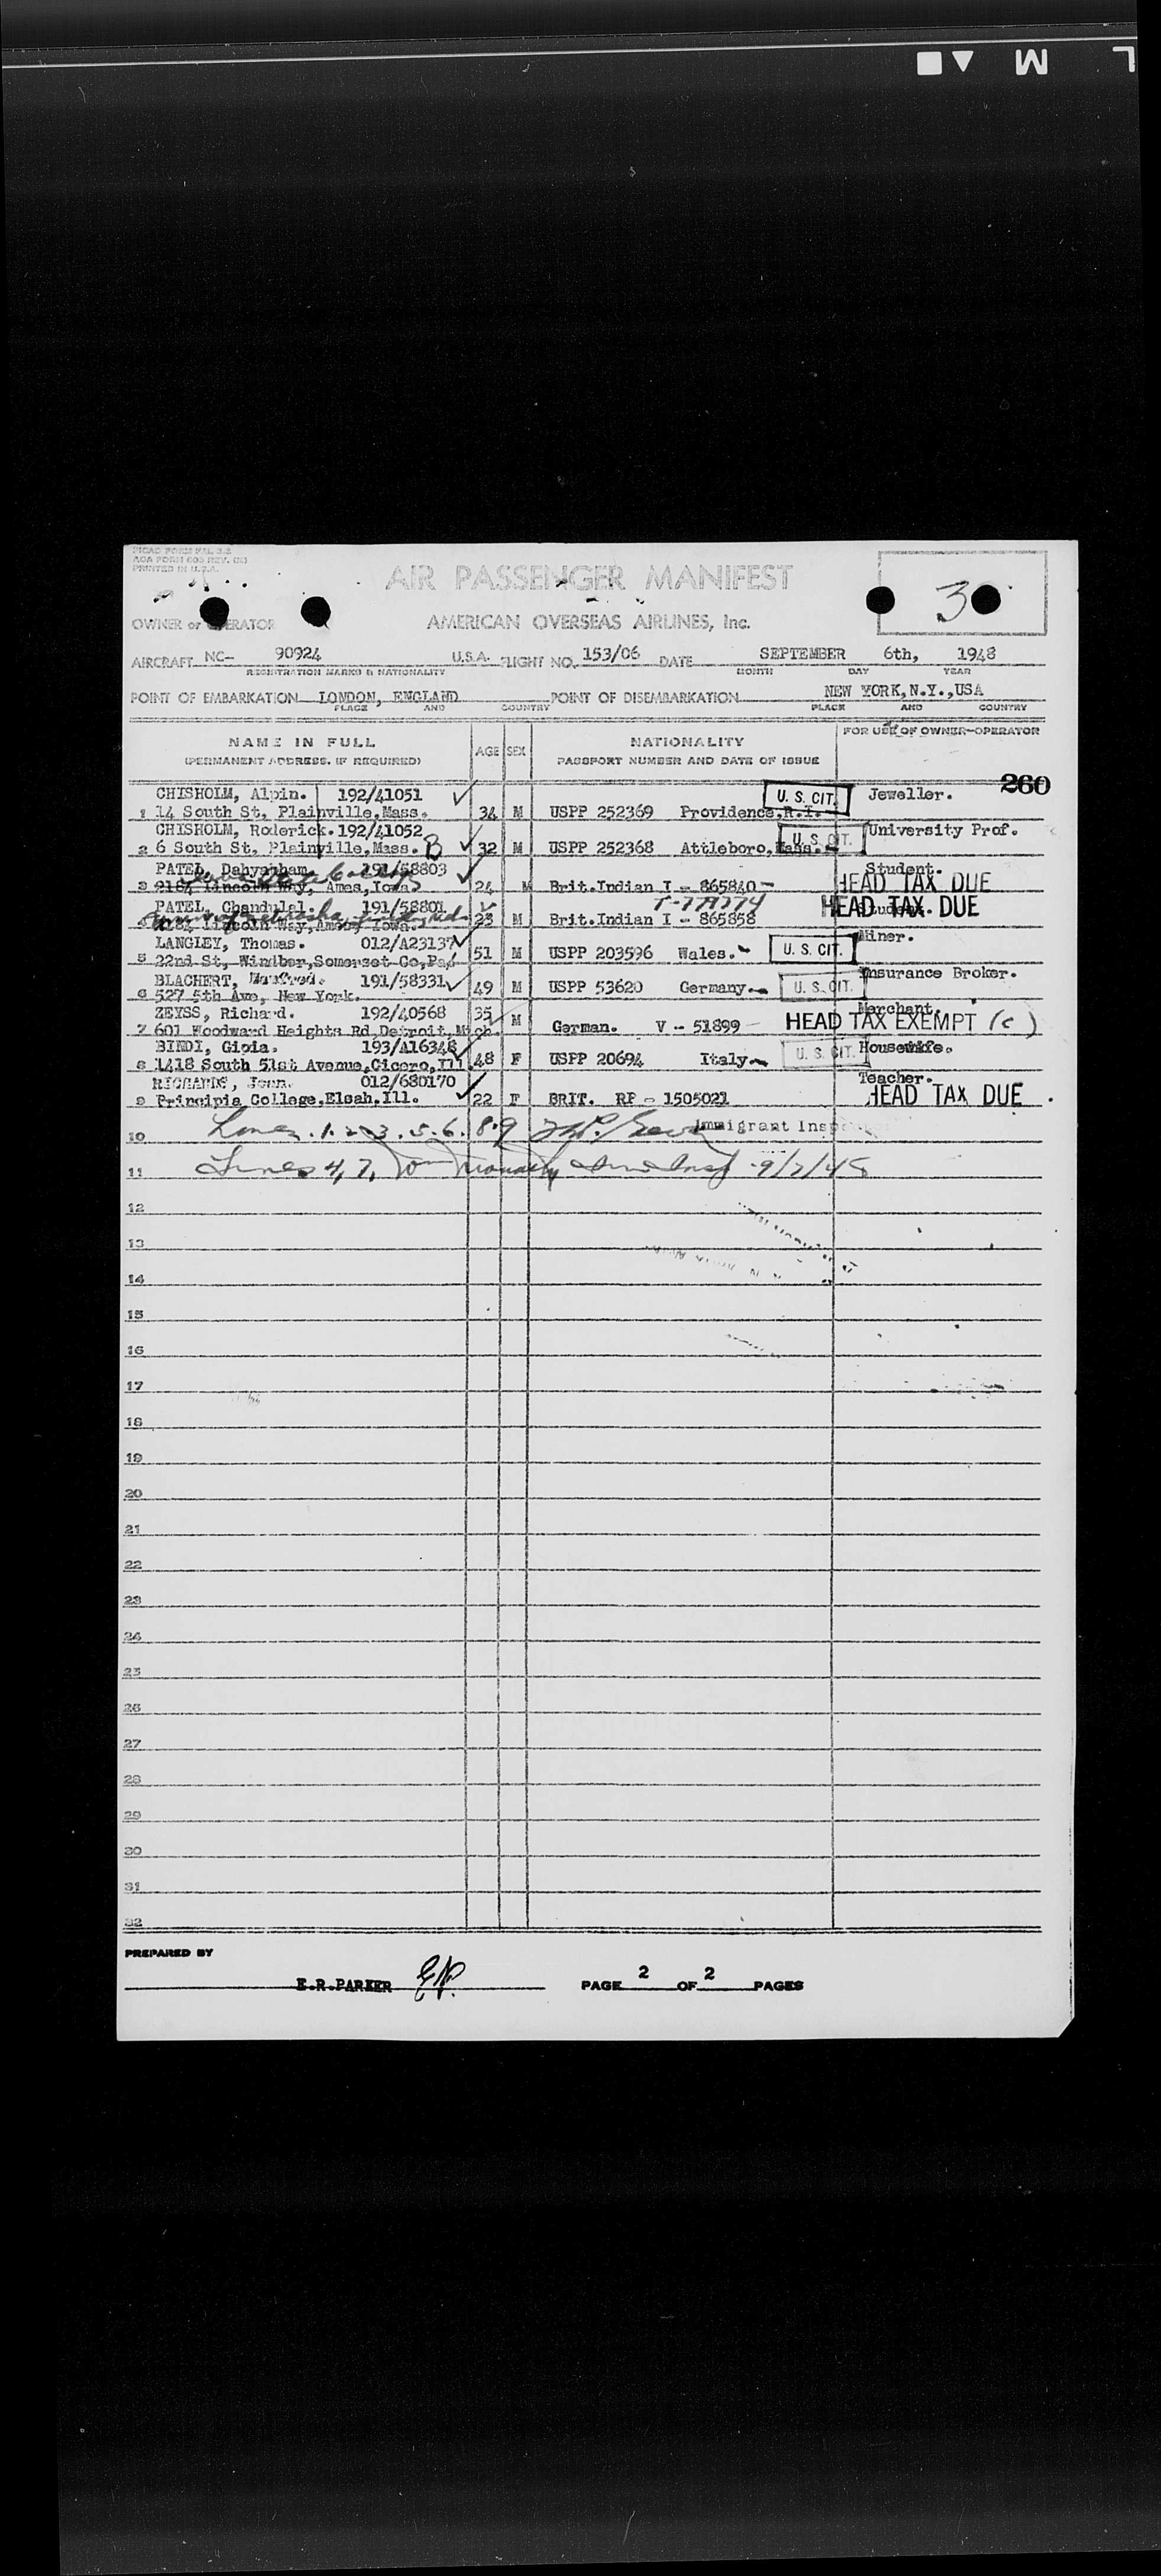 L M
PICAO FORM FAL 3.2
AOA FORM 603 REV.
PRINTED IN U.S.A.
AIR PASSENGER MANIFEST
3
OWNER or OPERATOR AMERICAN OVERSEAS AIRLINES, Inc.
AIRCRAFT NC- 90924 U.S.A. FLIGHT NO. 153/06 DATE SEPTEMBER 6th, 1948
REGISTRATION MARKS & NATIONALITY MONTH DAY YEAR
POINT OF EMBARKATION LONDON, ENGLAND POINT OF DISEMBARKATION NEW YORK,N.Y.,USA
PLACE AND COUNTRY PLACE AND COUNTRY
NAME IN FULL AGE SEX NATIONALITY FOR USE OF OWNER-OPERATOR
(PERMANENT ADDRESS. IF REQUIRED) PASSPORT NUMBER AND DATE OF ISSUE
260
CHISHOLM, Alpin. 192/41051 U. S. CIT. Jeweller.
1 14 South St, Plainville,Mass. 34 M USPP 252369 Providence,R.I.
CHISHOLM, Roderick. 192/41052 U. S. CIT. University Prof.
2 6 South St, Plainville,Mass. B 32 M USPP 252368 Attleboro,Mass.
PATEL, Dahyabham 191/58803 Student.
3 2184 Lincoln Way, Ames,Iowa. 24 M Brit.Indian I - 865840 - HEAD TAX DUE
PATEL, Chandulal. 191/58801 HEAD TAX DUE
4 Lincoln Way,Ames, Iowa. 23 M Brit.Indian I - 865858
LANGLEY, Thomas. 012/A23137 Miner.
5 22nd St, Windber,Somerset Co,Pa. 51 M USPP 203596 Wales. U. S. CIT.
BLACHERT, Manfred. 191/58331 Insurance Broker.
6 527 5th Ave, New York. 49 M USPP 53620 Germany U. S. CIT.
ZEYSS, Richard. 192/40568 35 Merchant.
7 601 Woodward Heights Rd,Detroit,Mich. M German. V - 51899 HEAD TAX EXEMPT (c)
BINDI, Gioia. 193/A16348 Housewife.
8 1418 South 51st Avenue,Cicero,Ill. 48 F USPP 20694 Italy U. S. CIT.
RICHARDS, Joan. 012/680170 Teacher.
9 Principia College,Elsah.Ill. 22 F BRIT. RP - 1505021 HEAD TAX DUE
10 Lines 1.2.3.5.6.8.9 Immigrant Insp
11 Lines 4, 7,
12
13
14
15
16
17
18
19
20
21
22
23
24
25
26
27
28
29
30
31
32
PREPARED BY
E.R.PARKER PAGE 2 OF 2 PAGES